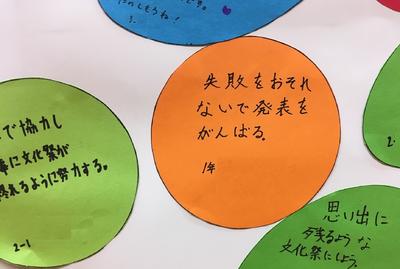 たのしもうね!
失敗をおそれ
ないで発表を
がんばる。
1年
で協力し
事に文化祭が
終れるように努力する。
2-1
2.
思い出に
残るような
文化祭にしよう。